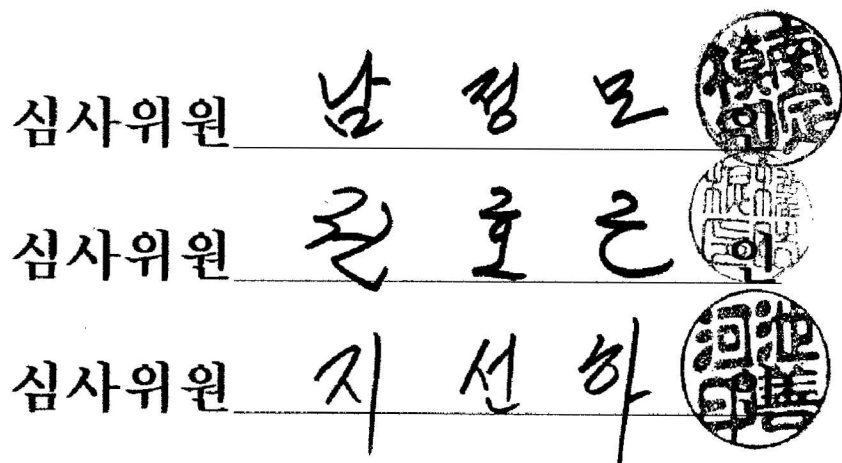 심사위원 남정모 인
심사위원 권호근 인
심사위원 지선하